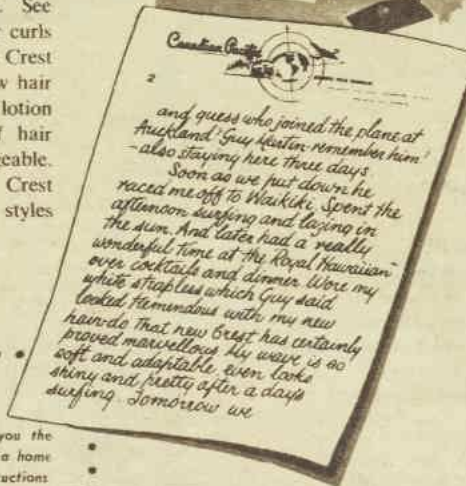 See
curls
Crest
hair
lotion
hair
geable.
Crest
styles
Canadian Pacific
2
and guess who joined the plane at
Auckland! Guy Martin-remember him!
-also staying here three days
Soon as we put down he
raced me off to Waikiki. Spent the
afternoon surfing and lazing in
the sun. And later had a really
wonderful time at the Royal Hawaiian-
over cocktails and dinner Wore my
white strapless which Guy said
looked tremendous with my new
hair-do That new Crest has certainly
proved marvellous My wave is so
soft and adaptable, even looks
shiny and pretty after a days
surfing. Tomorrow we
you the
a home
uctions